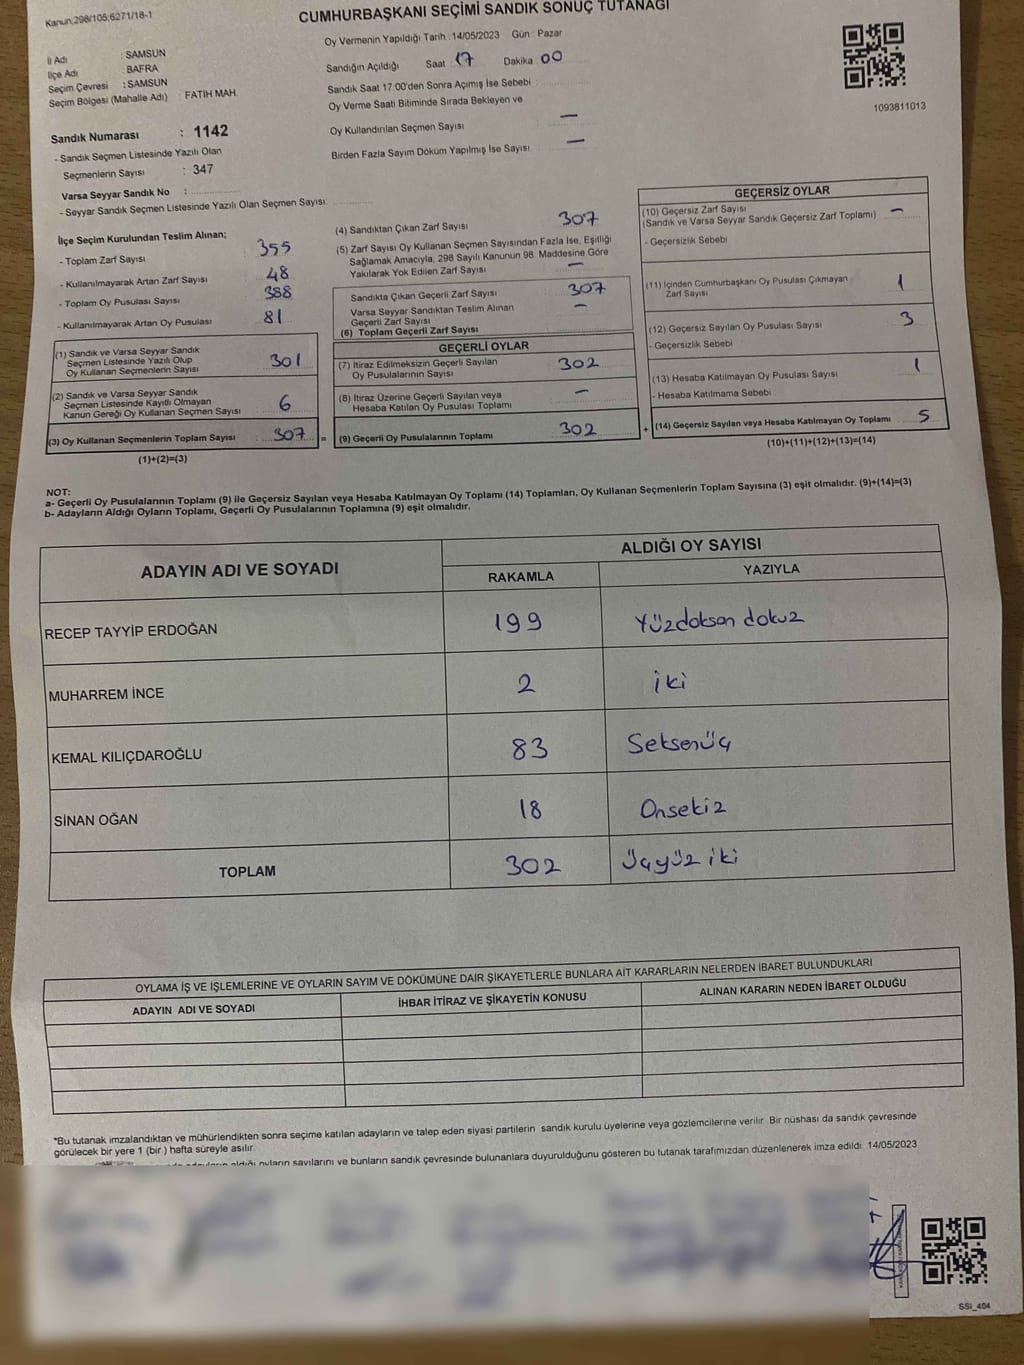 Kanun;298/105;6271/18-1
CUMHURBAŞKANI SEÇİMİ SANDIK SONUÇ TUTANAĞI
İl Adı : SAMSUN
İlçe Adı : BAFRA
Seçim Çevresi : SAMSUN
Seçim Bölgesi (Mahalle Adı) FATİH MAH.
Sandık Numarası : 1142
- Sandık Seçmen Listesinde Yazılı Olan
Seçmenlerin Sayısı : 347
Varsa Seyyar Sandık No :
- Seyyar Sandık Seçmen Listesinde Yazılı Olan Seçmen Sayısı:
Oy Vermenin Yapıldığı Tarih : 14/05/2023 Gün : Pazar
Sandığın Açıldığı Saat 17 Dakika 00
Sandık Saat 17:00'den Sonra Açımış İse Sebebi
Oy Verme Saati Bitiminde Sırada Bekleyen ve
Oy Kullandırılan Seçmen Sayısı —
Birden Fazla Sayım Döküm Yapılmış İse Sayısı —
1093811013
İlçe Seçim Kurulundan Teslim Alınan;
- Toplam Zarf Sayısı 355
- Kullanılmayarak Artan Zarf Sayısı 48
- Toplam Oy Pusulası Sayısı 388
- Kullanılmayarak Artan Oy Pusulası 81
(1) Sandık ve Varsa Seyyar Sandık
Seçmen Listesinde Yazılı Olup
Oy Kullanan Seçmenlerin Sayısı 301
(2) Sandık ve Varsa Seyyar Sandık
Seçmen Listesinde Kayıtlı Olmayan
Kanun Gereği Oy Kullanan Seçmen Sayısı 6
(3) Oy Kullanan Seçmenlerin Toplam Sayısı 307 =
(1)+(2)=(3)
(4) Sandıktan Çıkan Zarf Sayısı 307
(5) Zarf Sayısı Oy Kullanan Seçmen Sayısından Fazla İse, Eşitliği
Sağlamak Amacıyla, 298 Sayılı Kanunun 98. Maddesine Göre
Yakılarak Yok Edilen Zarf Sayısı —
Sandıkta Çıkan Geçerli Zarf Sayısı 307
Varsa Seyyar Sandıktan Teslim Alınan
Geçerli Zarf Sayısı —
(6) Toplam Geçerli Zarf Sayısı
GEÇERLİ OYLAR
(7) İtiraz Edilmeksizin Geçerli Sayılan
Oy Pusulalarının Sayısı 302
(8) İtiraz Üzerine Geçerli Sayılan veya
Hesaba Katılan Oy Pusulası Toplamı —
(9) Geçerli Oy Pusulalarının Toplamı 302 +
GEÇERSİZ OYLAR
(10) Geçersiz Zarf Sayısı —
(Sandık ve Varsa Seyyar Sandık Geçersiz Zarf Toplamı)
- Geçersizlik Sebebi
(11) İçinden Cumhurbaşkanı Oy Pusulası Çıkmayan
Zarf Sayısı 1
(12) Geçersiz Sayılan Oy Pusulası Sayısı 3
- Geçersizlik Sebebi
(13) Hesaba Katılmayan Oy Pusulası Sayısı 1
- Hesaba Katılmama Sebebi
(14) Geçersiz Sayılan veya Hesaba Katılmayan Oy Toplamı 5
(10)+(11)+(12)+(13)=(14)
NOT:
a- Geçerli Oy Pusulalarının Toplamı (9) ile Geçersiz Sayılan veya Hesaba Katılmayan Oy Toplamı (14) Toplamları, Oy Kullanan Seçmenlerin Toplam Sayısına (3) eşit olmalıdır. (9)+(14)=(3)
b- Adayların Aldığı Oyların Toplamı, Geçerli Oy Pusulalarının Toplamına (9) eşit olmalıdır.
ADAYIN ADI VE SOYADI
ALDIĞI OY SAYISI
RAKAMLA YAZIYLA
RECEP TAYYİP ERDOĞAN 199 Yüzdoksan dokuz
MUHARREM İNCE 2 iki
KEMAL KILIÇDAROĞLU 83 Seksenüç
SİNAN OĞAN 18 Onsekiz
TOPLAM 302 Üçyüz iki
OYLAMA İŞ VE İŞLEMLERİNE VE OYLARIN SAYIM VE DÖKÜMÜNE DAİR ŞİKAYETLERLE BUNLARA AİT KARARLARIN NELERDEN İBARET BULUNDUKLARI
ADAYIN ADI VE SOYADI İHBAR İTİRAZ VE ŞİKAYETİN KONUSU ALINAN KARARIN NEDEN İBARET OLDUĞU
*Bu tutanak imzalandıktan ve mühürlendikten sonra seçime katılan adayların ve talep eden siyasi partilerin sandık kurulu üyelerine veya gözlemcilerine verilir. Bir nüshası da sandık çevresinde
görülecek bir yere 1 (bir ) hafta süreyle asılır.
adayların aldığı oyların sayılarını ve bunların sandık çevresinde bulunanlara duyurulduğunu gösteren bu tutanak tarafımızdan düzenlenerek imza edildi. 14/05/2023
SSİ_404